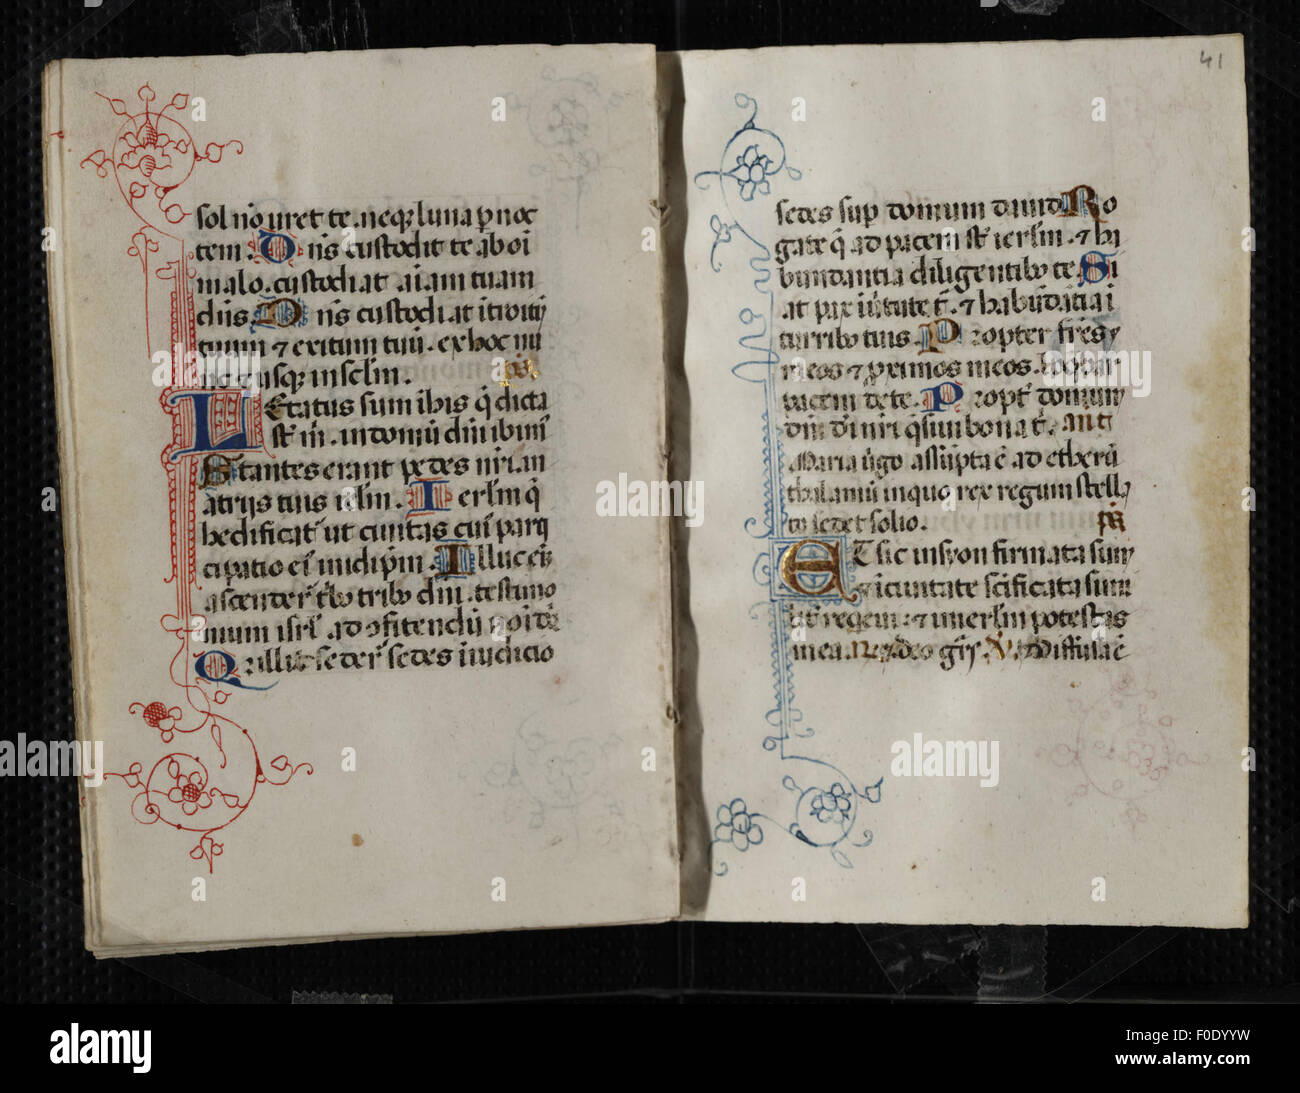 41
sol nō uret te. neq; luna p noc
tem. Dn̄s custodit te ab oī
malo. custodiat aīam tuam
dn̄s. Dn̄s custodiat ītroitū
tuum ⁊ exitum tuū. ex hoc nū
nc ⁊ usq; in sclm. ps.
Letatus sum ī his q̄ dicta
st̄ m̄. in domū dn̄i ibim⁹
Stantes erant pedes nr̄i. in
atrijs tuis ierlm. Ierlm q̄
hedificat̄ ut ciuitas cui⁹ parti
cipatio ei⁹ in idip̄m. Illuc em̄
ascender̄t tribꝰ tribꝰ dn̄i. testimo
nium isrl̄ ad ꝯfitendū noī dn̄i
Q; illic seder̄t sedes ī iudicio
sedes sup domum dauid. Ro
gate q̄ ad pacem st̄ ierlm. ⁊ ha
bundantia diligentibꝰ te. Fi
at pax ī ūtute t. ⁊ habūdātia ī
turribꝰ tuis. Propter fr̄es
meos ⁊ proximos meos. loqbar
pacem de te. Propt̄ domum
dn̄i di nr̄i q̄siui bona t. ant
Maria ūgo assūpta ē ad etherū
thalamū in quo rex regum stella
to sedet solio.
ET sic in syon firmata sum
⁊ ī ciuitate sc̄ificata simi
lit̄ requieui ⁊ in ierlm potestas
mea. deo gr̄s. ℣. Diffusa ē
alamy
Image ID: F0DYYW
www.alamy.com